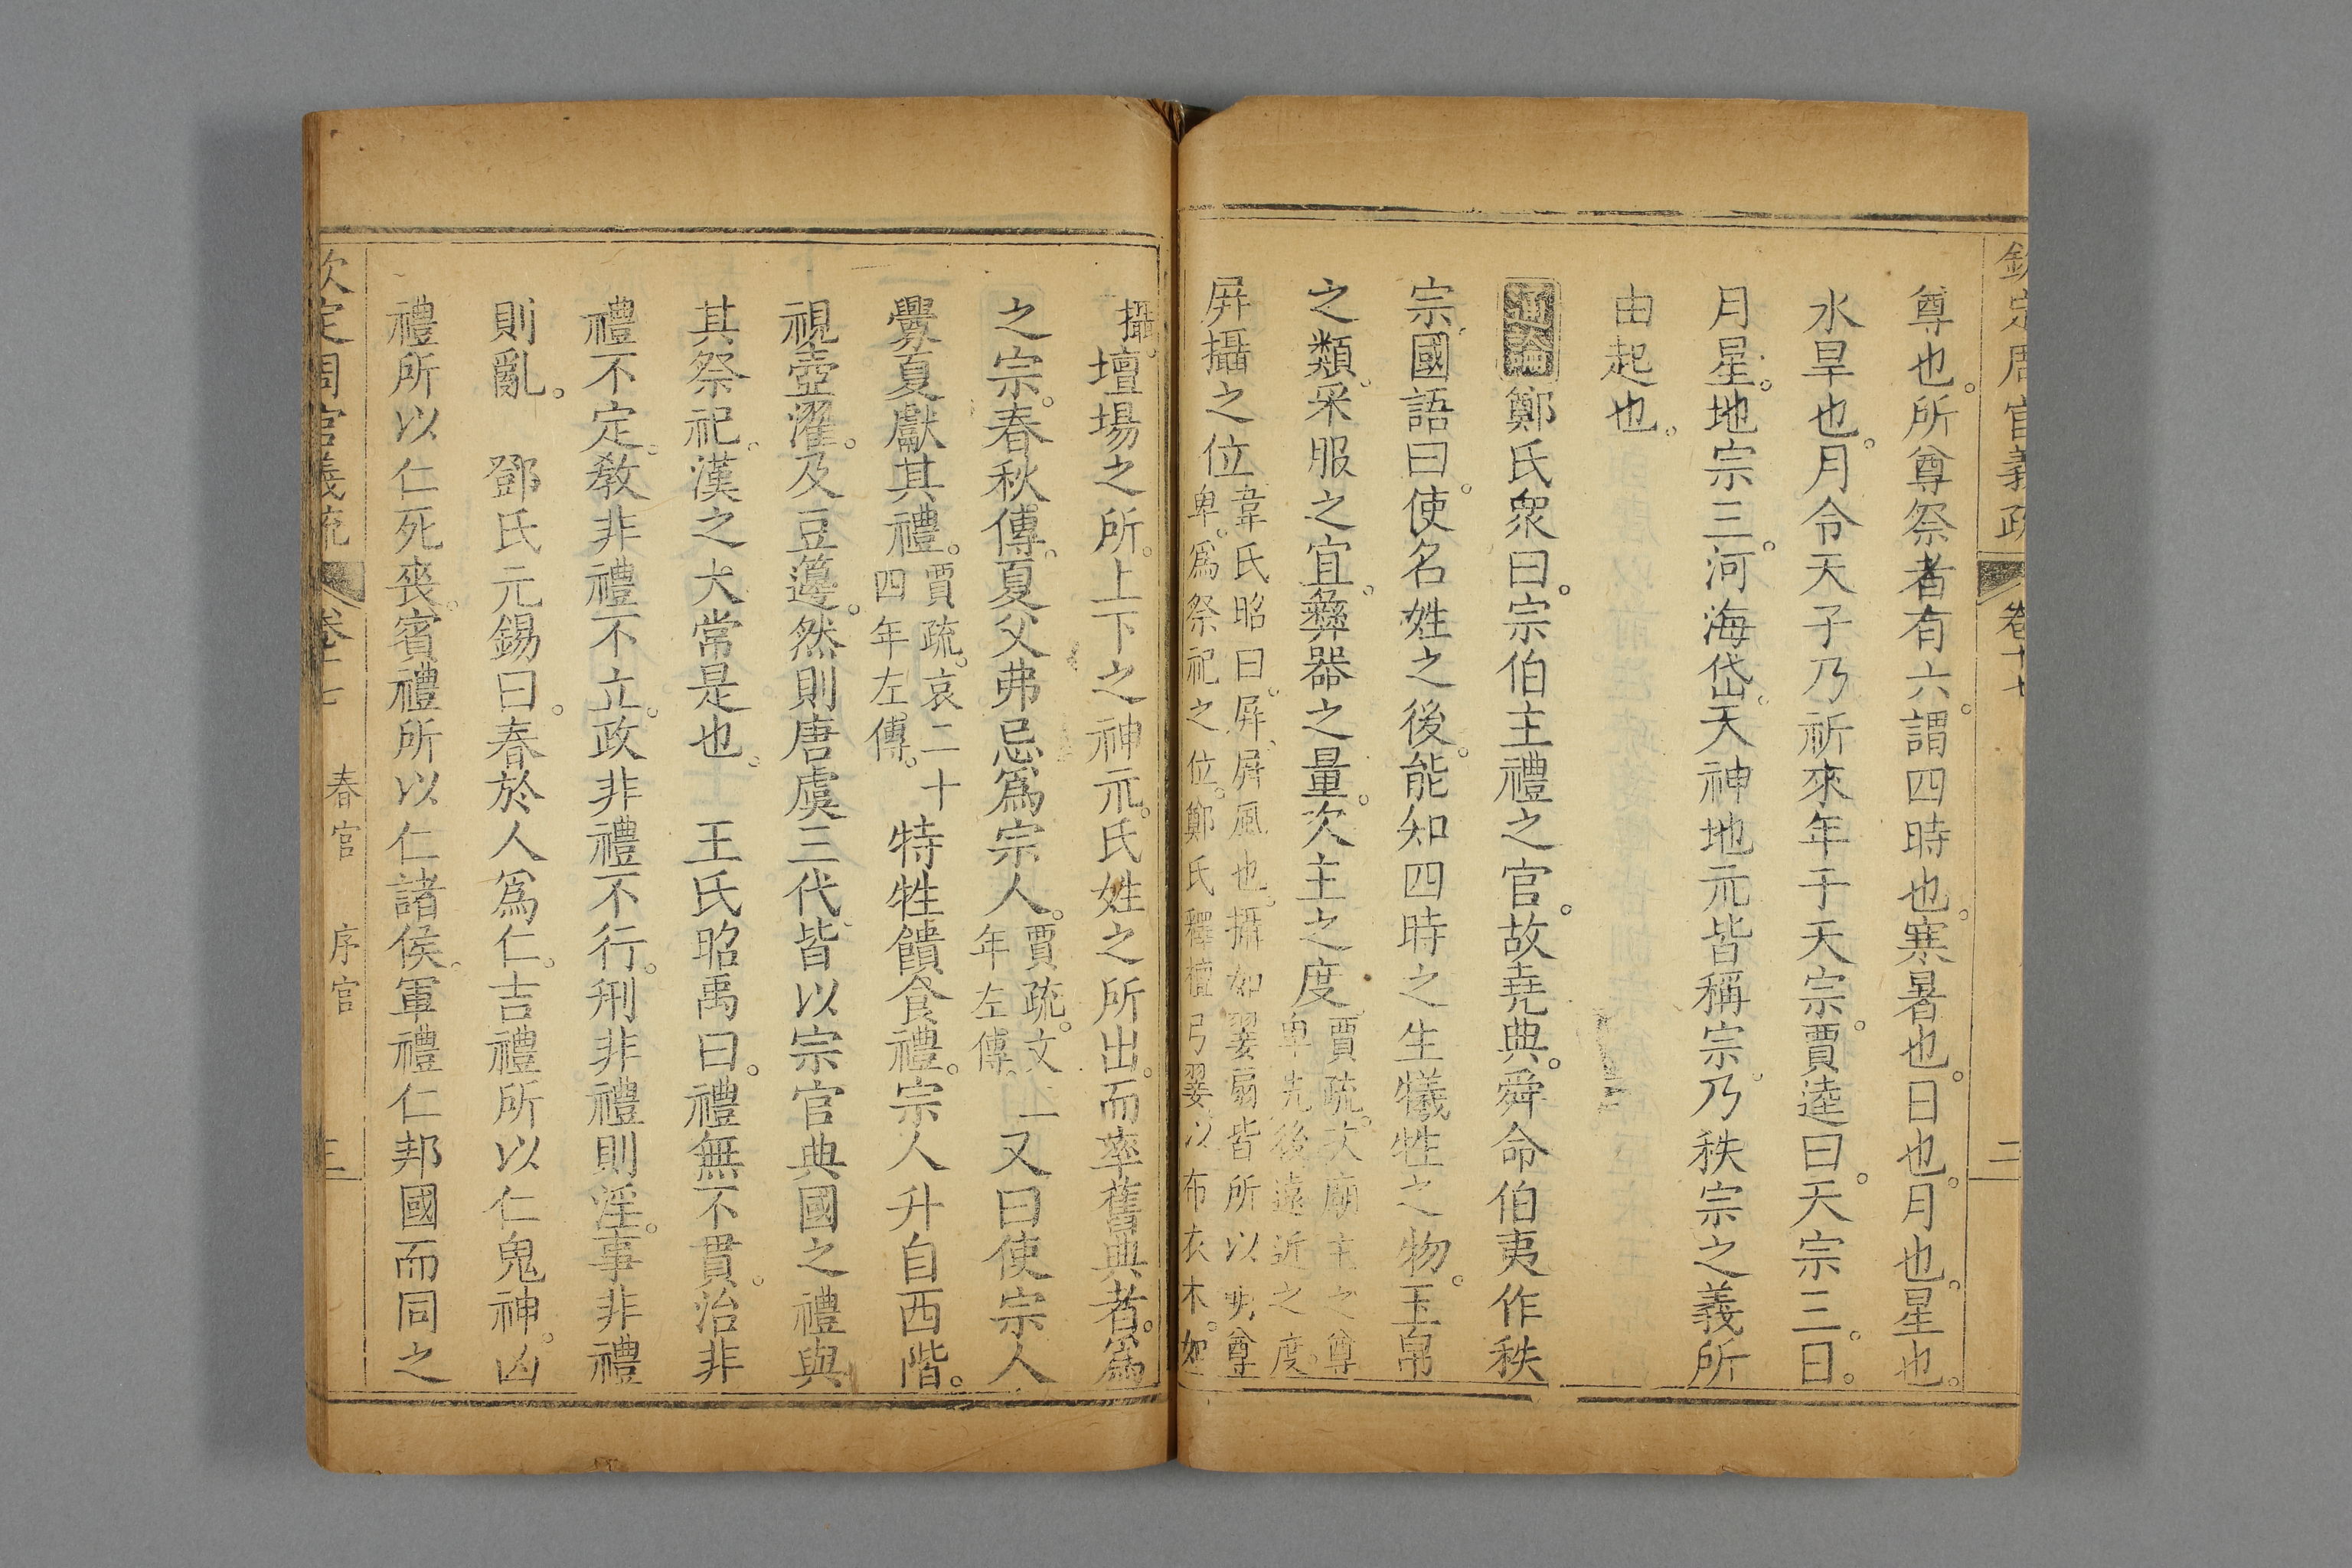 欽定周官義疏 卷十七 二
尊也。所尊祭者有六。謂四時也。寒暑也。日也。月也。星也。
水旱也。月令天子乃祈來年于天宗。賈逵曰。天宗三。日。
月星。地宗三。河海岱。天神地示皆稱宗。乃秩宗之義所
由起也。
通論鄭氏衆曰。宗伯主禮之官。故堯典。舜命伯夷作秩
宗。國語曰。使名姓之後。能知四時之生犧牲之物。玉帛
之類。采服之宜。彝器之量。次主之度賈疏。次廟主之尊
卑先後遠近之度。
屏攝之位韋氏昭曰。屏、屏風也。攝如翣扇皆所以明尊
卑。爲祭祀之位。鄭氏釋檀弓翣。以布衣木。如
攝。壇場之所。上下之神示。氏姓之所出。而率舊典者。爲
之宗。春秋傳。夏父弗忌爲宗人。賈疏。文二
年左傳。又曰使宗人
釁夏獻其禮。賈疏。哀二十
四年左傳。特牲饋食禮。宗人升自西階。
視壺濯。及豆籩。然則唐虞三代。皆以宗官典國之禮與
其祭祀。漢之大常是也。 王氏昭禹曰。禮無不貫。治非
禮不定。敎非禮不立。政非禮不行。刑非禮則淫。事非禮
則亂。 鄧氏元錫曰。春於人爲仁。吉禮所以仁鬼神。凶
禮所以仁死喪。賓禮所以仁諸侯。軍禮仁邦國而同之
欽定周官義疏 卷十七 春官 序官 三